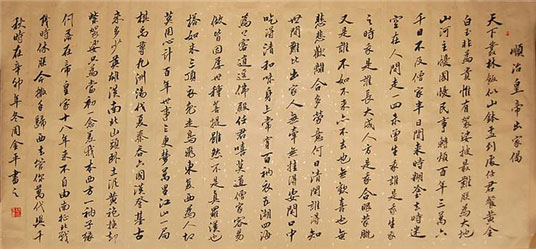 順治皇帝出家偈
天下叢林飯似山鉢盂到處任君餐黃金
白玉非為貴惟有袈裟披最難朕為大地
山河主憂國憂民事轉煩百年三萬六
千日不及僧家半日閒來時糊塗去時迷
空在人間走一回未曾生我誰是我生我
之時我是誰長大成人方是我合眼朦朧
又是誰不如不來亦不去也無歡喜也無
悲悲歡離合多勞慮何日清閒誰得知
世間難比出家人無牽無掛得安閒口中
吃得清和味身上常穿百衲衣五湖四海
為上客逍遙佛殿任君嘻莫道僧家容易
做皆因屢世種菩提雖然不是真羅漢也
搭如來三頂衣兔走烏飛東復西為人切
莫用心計百年世事三更夢萬里江山一局
棋禹尊九洲湯伐夏秦吞六國漢登基古
來多少英雄漢南北山頭臥土泥黃袍換卻
紫袈裟只為當初一念差我本西方一衲子緣
何落在帝皇家十八年來不自由南征北戰
幾時休朕今撒手歸西去管你萬代與千
秋時在辛卯年冬周金平書之